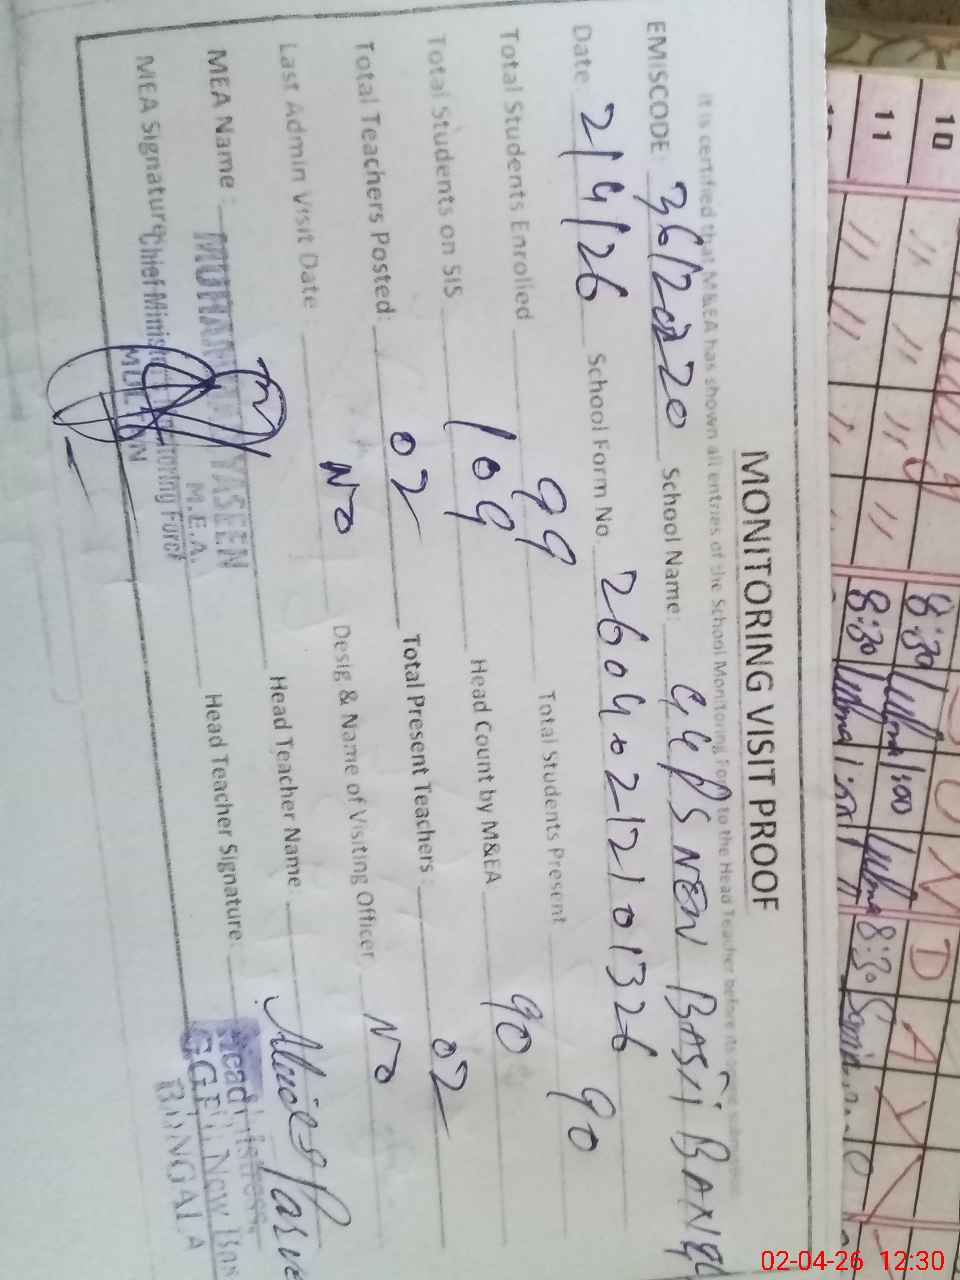 MONITORING VISIT PROOF
It is certified that M&EA has shown all entries of the School Monitoring Form to the Head Teacher before its
EMISCODE: 36120220 School Name: GGPS NEW BASTI BANG
Date 2/4/26 School Form No 26040212101326
Total Students Enrolled 99 Total Students Present 90
Total Students on SIS 109 Head Count by M&EA 90
Total Teachers Posted: 02 Total Present Teachers: 02
Last Admin Visit Date: No Desig & Name of Visiting Officer No
MEA Name: YASEEN Head Teacher Name
M.E.A.
MEA Signature Head Teacher Signature
Chief Minister Monitoring Force
MULTAN
Head
New
BUNGALA
10
11
8:30
8:30
8:30
SUNDAY
02-04-26 12:30